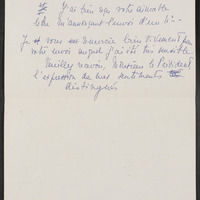 J'ai bien reçu votre aimable
lettre m'annonçant l'envoi d'un
Je vous remercie bien vivement pour
votre envoi auquel j'ai été très sensible.
Veuillez recevoir, Monsieur le Président
l'expression de mes sentiments
distingués